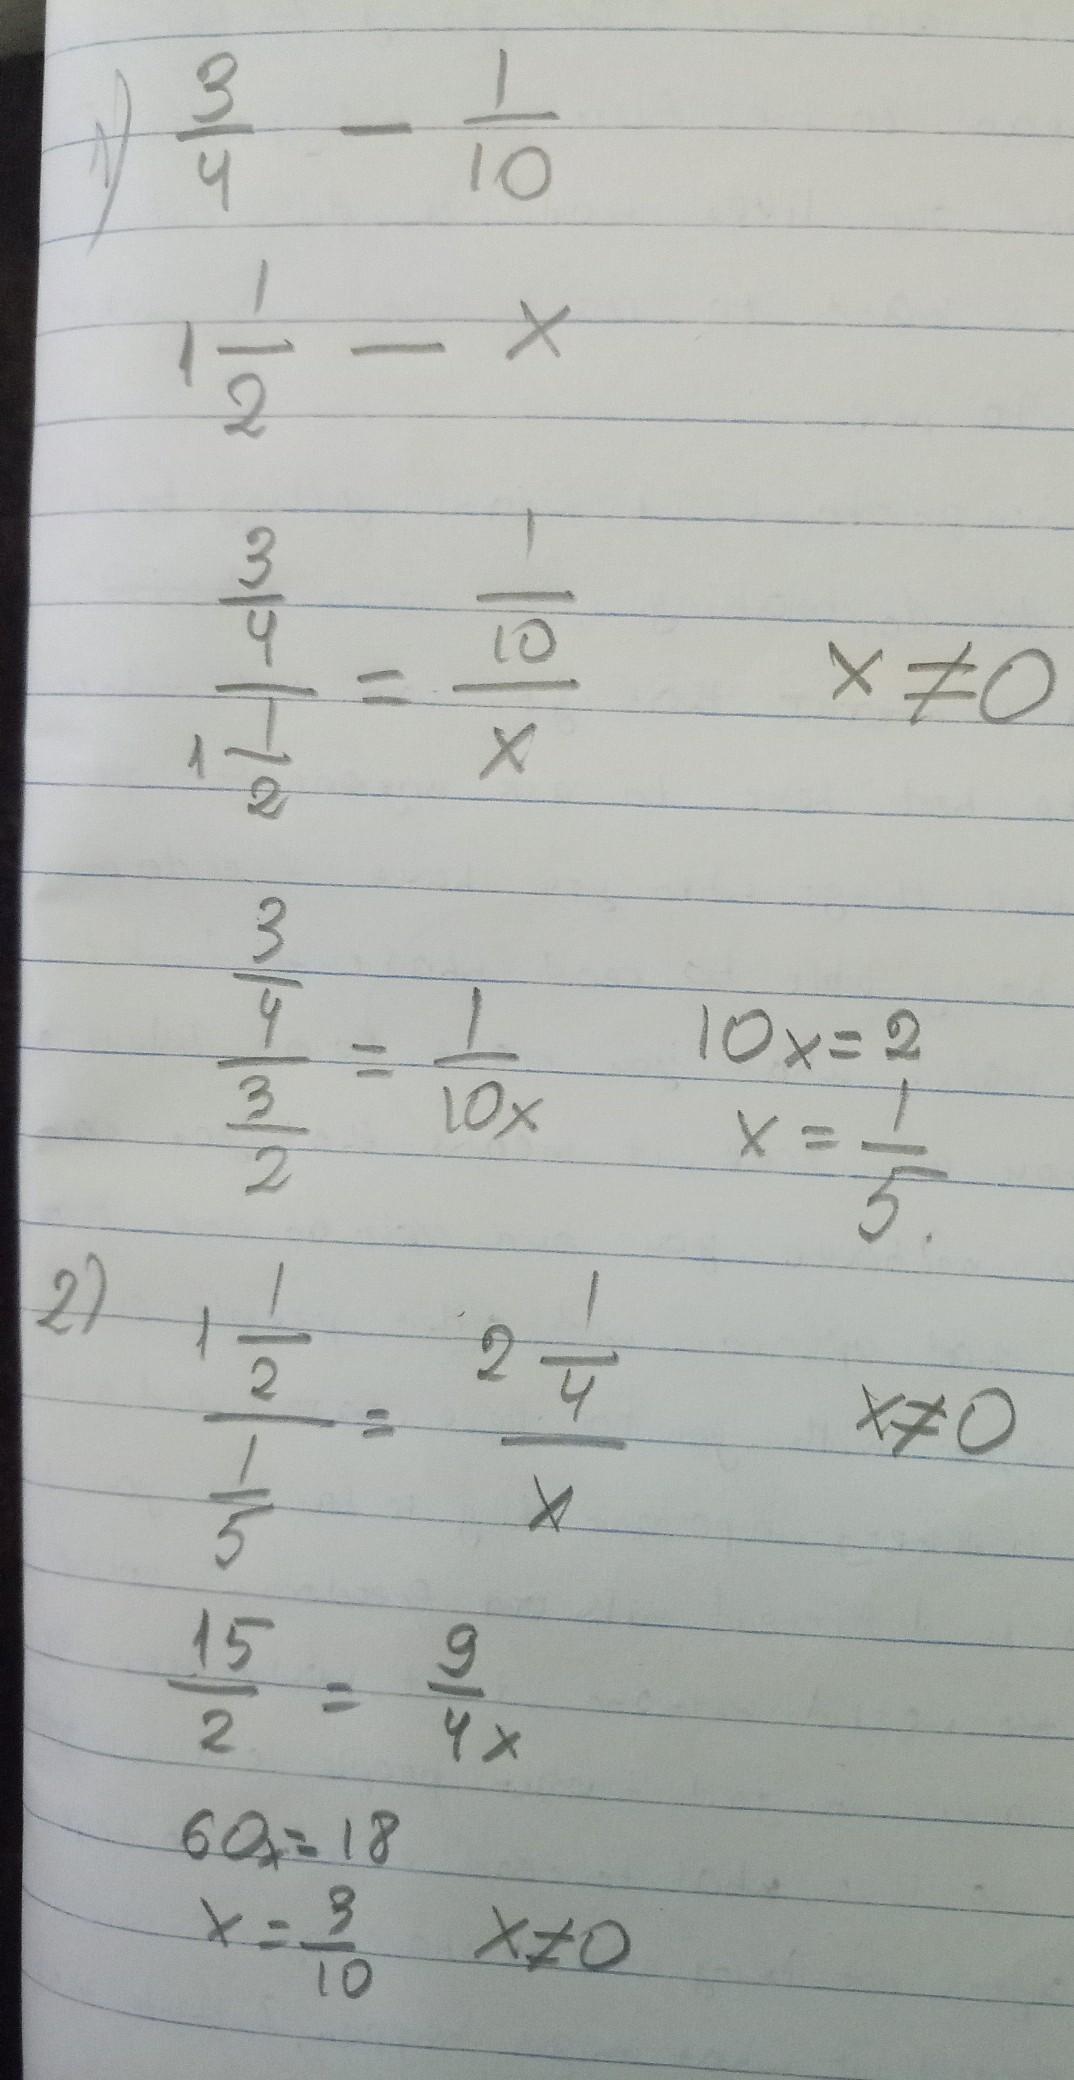 1) 3/4 — 1/10
1 1/2 — x
(3/4)/(1 1/2) = (1/10)/x x ≠ 0
(3/4)/(3/2) = 1/10x 10x = 2
x = 1/5.
2) (1 1/2)/(1/5) = (2 1/4)/x x ≠ 0
15/2 = 9/4x
60x = 18
x = 3/10 x ≠ 0